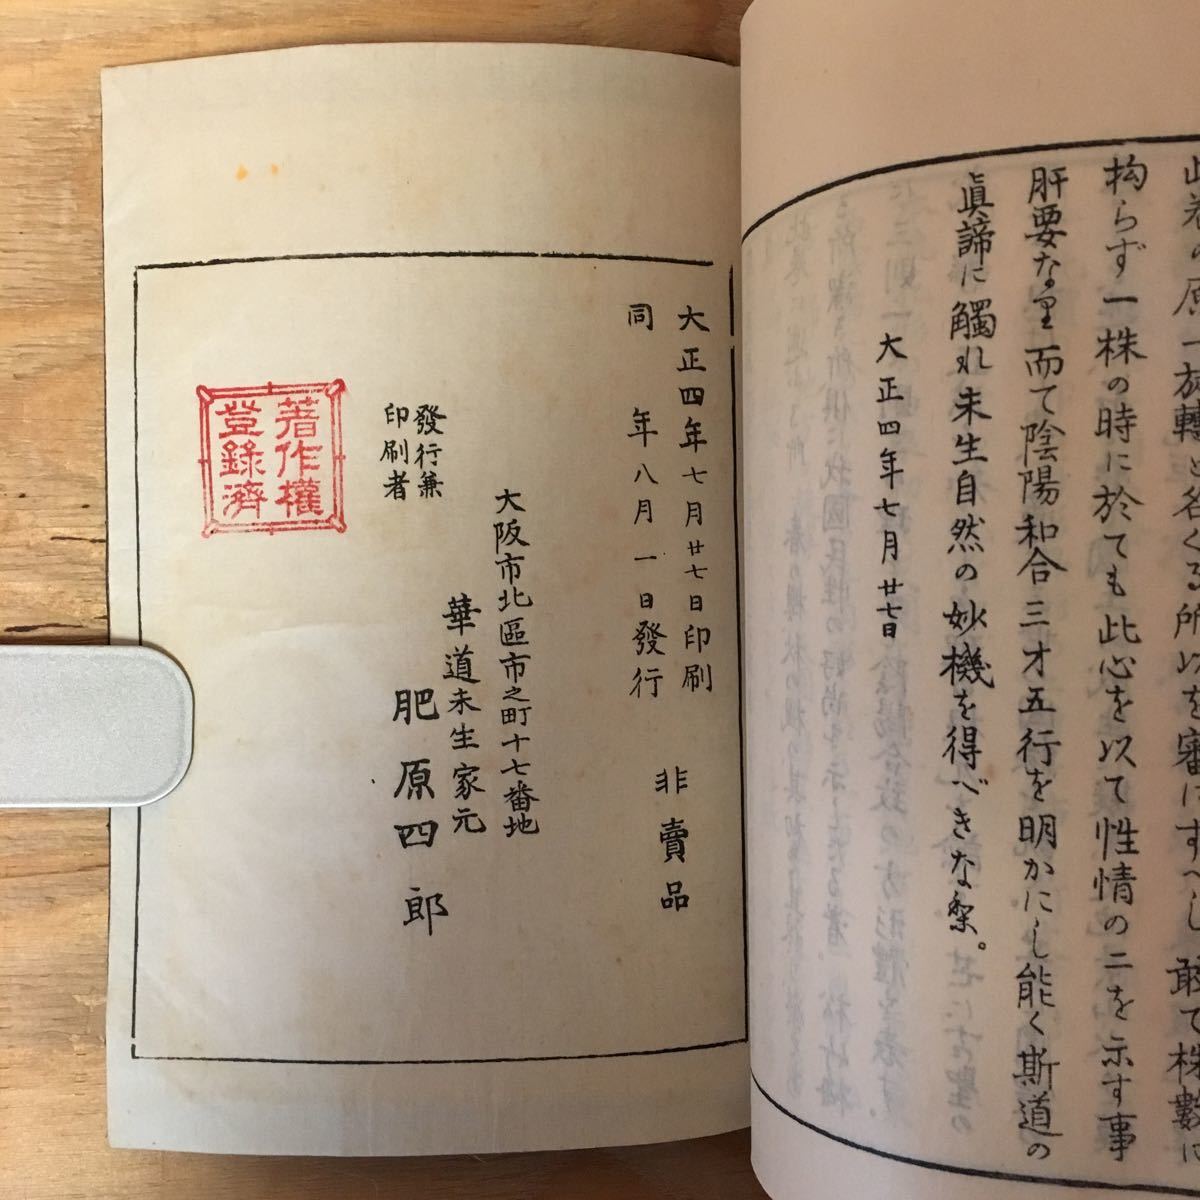 此巻の原一放轉と名くる所以を審にすへし敢て株數に
拘らず一株の時に於ても此心を以て性情の二を示す事
肝要なり而て陰陽和合三才五行を明かにし能く斯道の
眞諦に觸れ未生自然の妙機を得べきなり。
大正四年七月廿七日
大正四年七月廿七日印刷
同年八月一日發行
非賣品
大阪市北區市之町十七番地
華道未生家元
發行兼
印刷者
肥原四郎
著作權
登錄濟